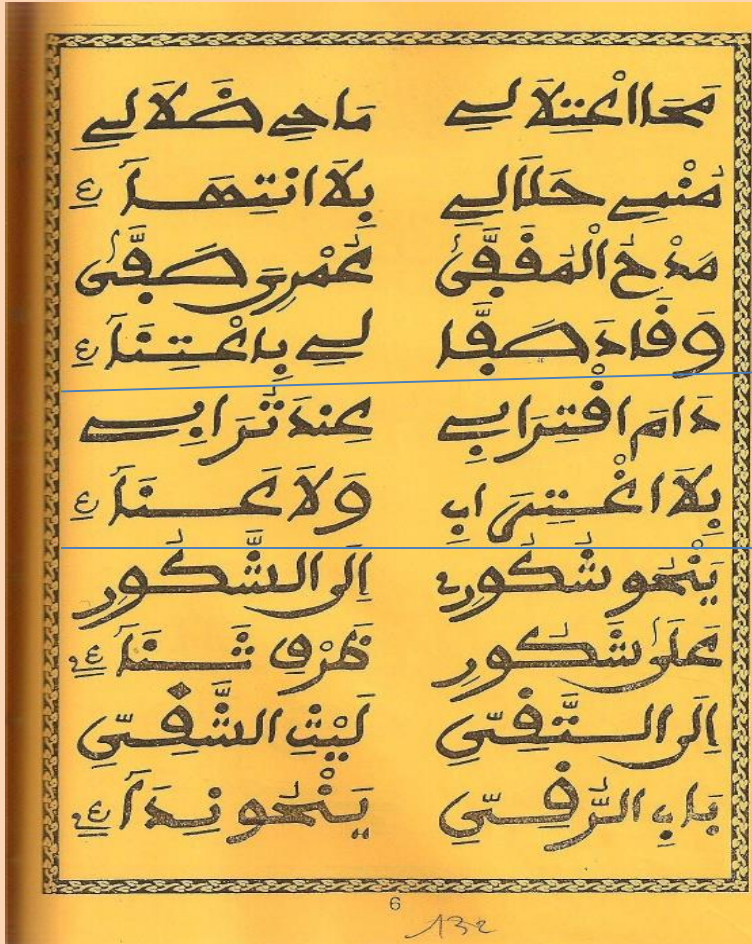 مَحَا اعْتِلَالِے مَاحِے ضَلَالِے
مُنْمِے حَلَالِے بِلَا انتِهَآءِ
مَدْحُ الْمُقَفَّىٰ عُمْرِيَ صَفَّىٰ
وَقَادَ صَفَّا لِے بِاعْتِنَآءِ
دَامَ اقْتِرَابِے عِندَ تُرَابِے
بِلَا اغْتِرَابِ وَلَا عَنَآءِ
يَنْحُو شُكُورِے إِلَى الشَّكُورِ
عَلَىٰ شَكُورِ ظَرْفِ ثَنَآءِ
إِلَى التَّقِيِّ لَيْثِ الشَّقِيِّ
بَابِ الرُّقِيِّ يَنْحُو نِدَآءِ
6
132